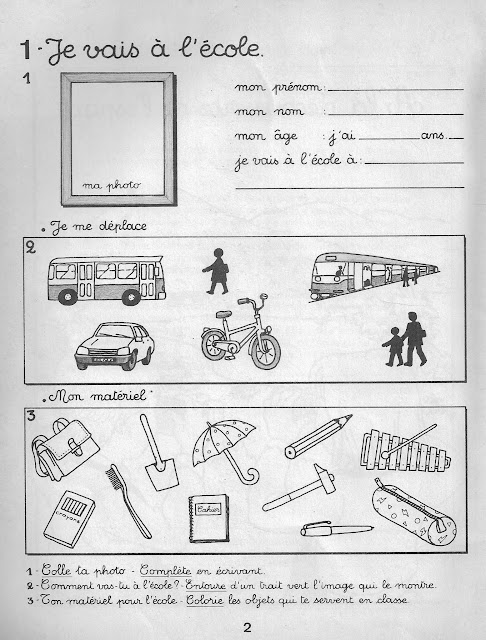 1 - Je vais à l'école.
1
ma photo
mon prénom:
mon nom :
mon âge : j'ai ans.
je vais à l'école à :
. Je me déplace
2
. Mon matériel
3
crayons
Cahier
1 - Colle ta photo - Complète en écrivant.
2 - Comment vas-tu à l'école? - Entoure d'un trait vert l'image qui le montre.
3 - Ton matériel pour l'école - Colorie les objets qui te servent en classe.
2